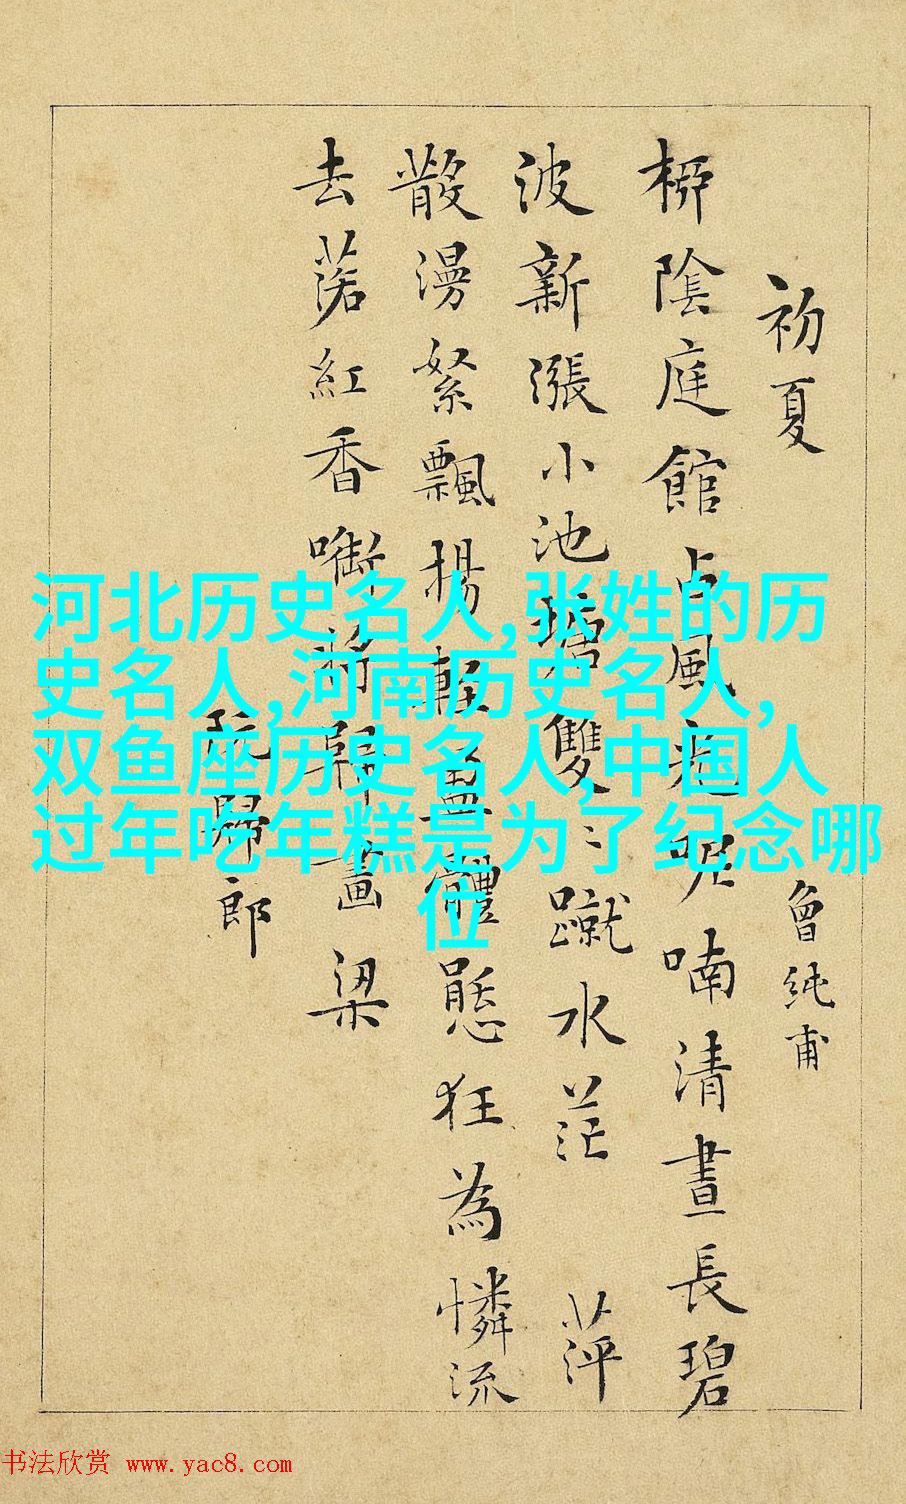 初夏 曾純甫
柳陰庭館占風光呢喃清晝長碧
波新漲小池塘雙〻蹴水茫 萍
散漫絮飄揚輕盈體態狂為憐流
去落紅香啣將歸畫梁
阮歸郎
河北历史名人,张姓的历
史名人,河南历史名人,
双鱼座历史名人,中国人
过年吃年糕是为了纪念哪
位
书法欣赏 www.yac8.com